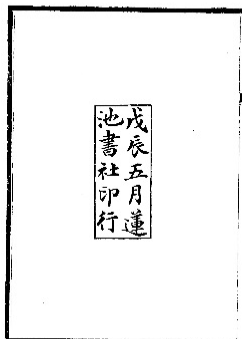 戊辰五月蓮
池書社印行